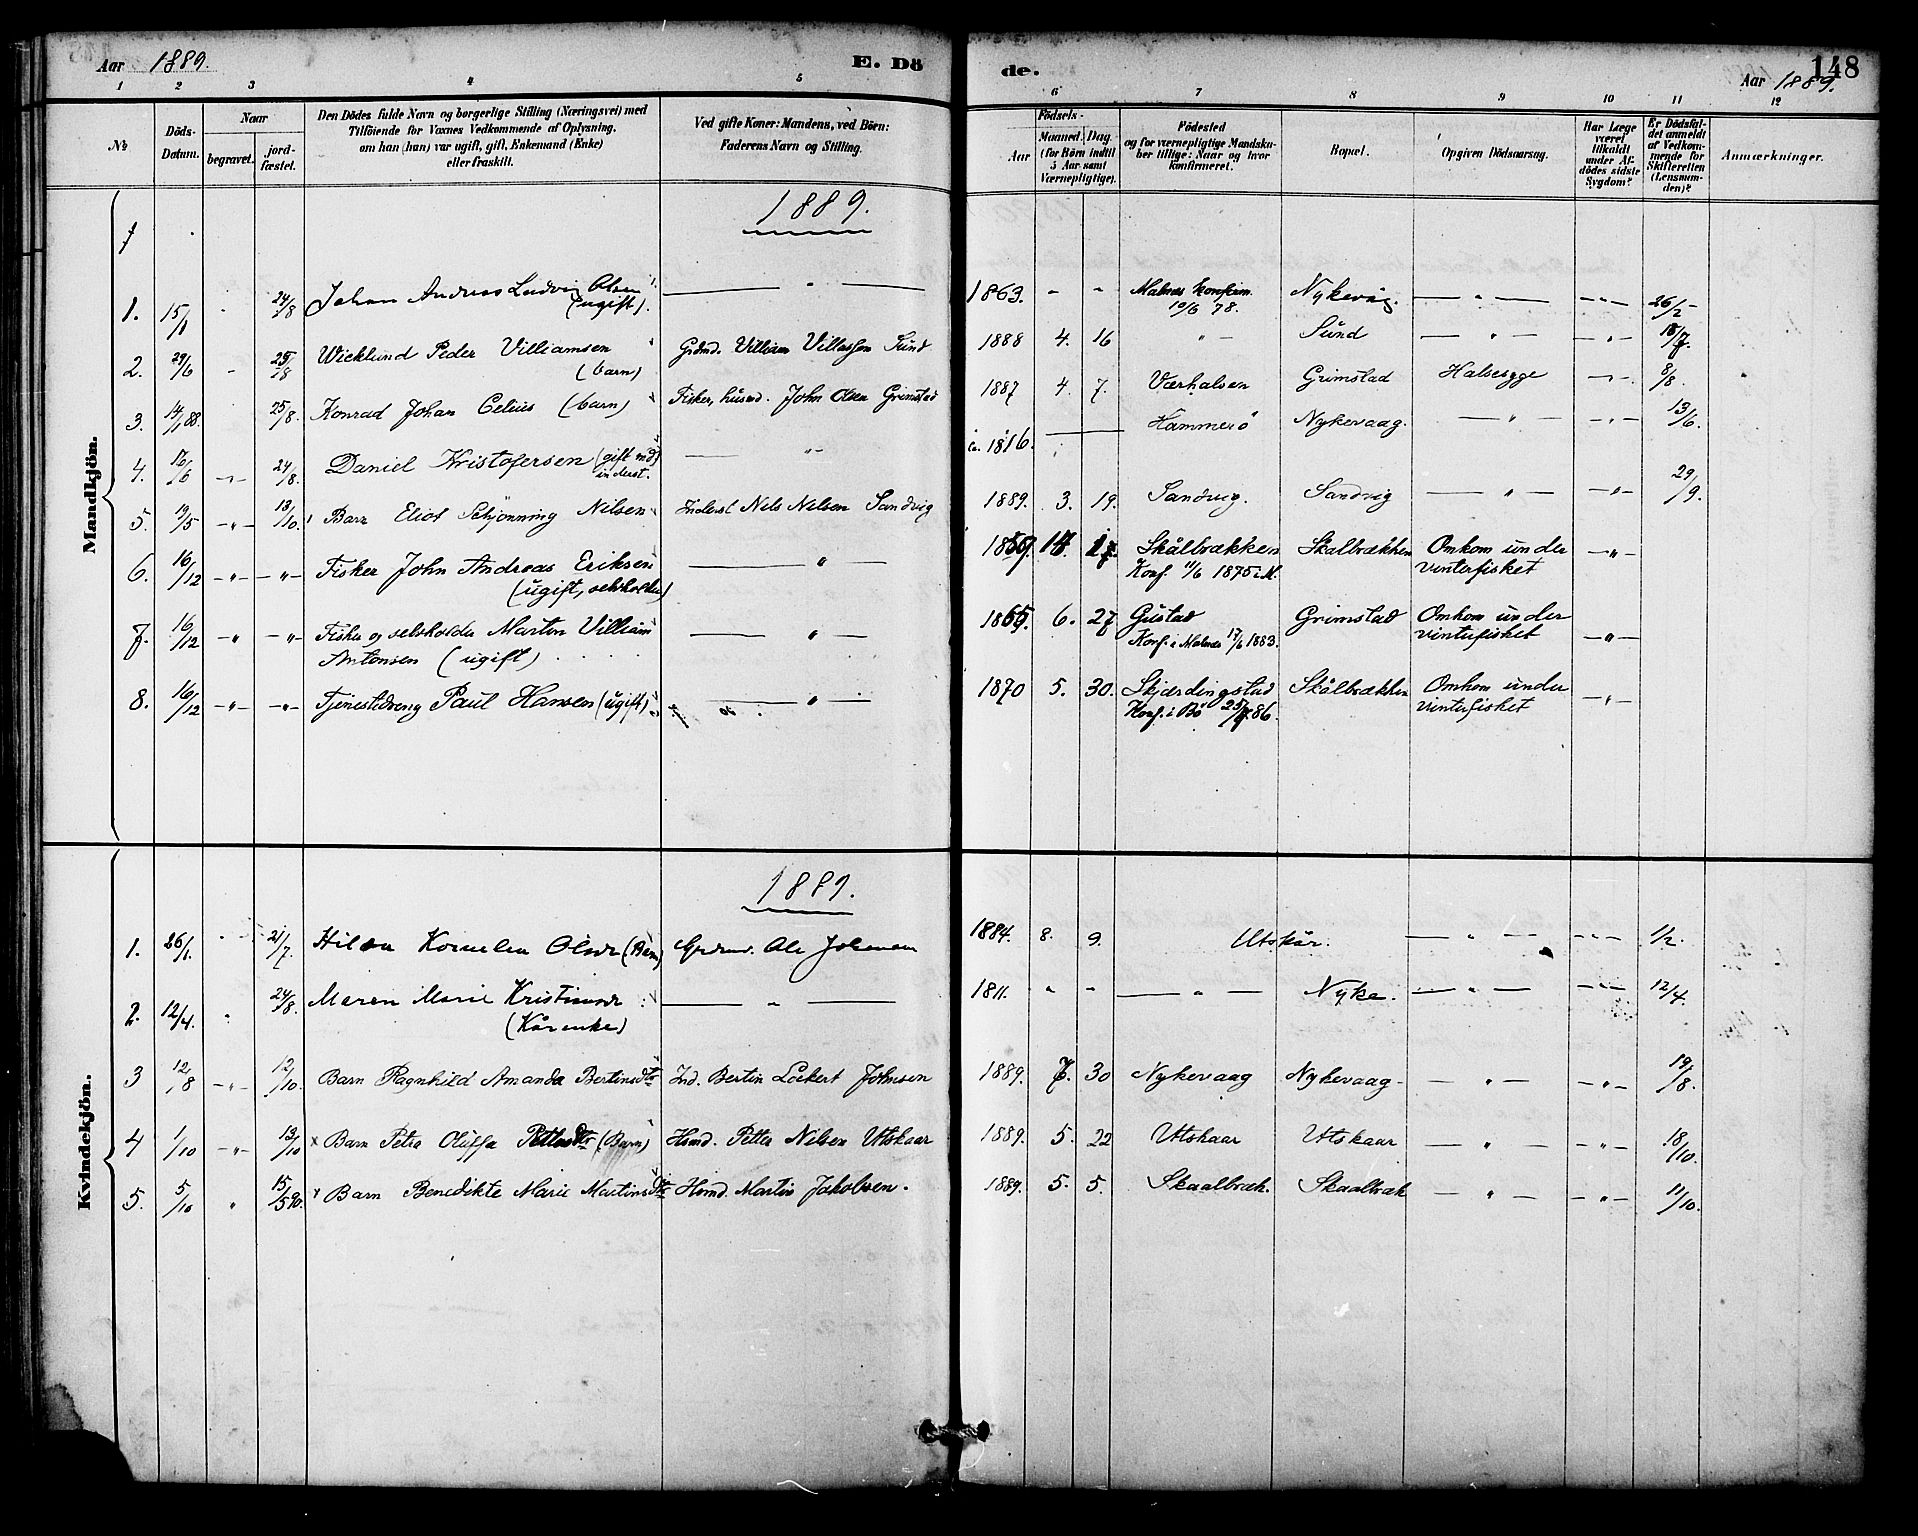 Aar 1889. E. Dö de. Aar 1889. 148
1 2 3 4 5 6 7 8 9 10 11 12
№ Döds-Datum. Naar begravet. jord-fæstet.
Den Dödes fulde Navn og borgerlige Stilling (Næringsvei) med
Tilföiende for Voxnes Vedkommende af Oplysning,
om han (hun) var ugift, gift, Enkemand (Enke)
eller fraskilt.
Ved gifte Koner: Mandens, ved Börn:
Faderens Navn og Stilling.
Födsels-
Aar Maaned. Dag.
(for Börn indtil
5 Aar samt
Værnepligtige).
Födested
og for værnepligtige Mandska-
ber tillige: Naar og hvor
konfirmeret.
Bopæl.
Opgiven Dödsaarsag.
Har Læge
været
tilkaldt
under Af-
dödes sidste
Sygdom?
Er Dödsfal-
det anmeldt
af Vedkom-
mende for
Skifteretten
(Lensman-
den)?
Anmærkninger.
Mandkjön.
1889.
1. 15/1 24/8 Johan Andreas Ludvig Olsen — " — 1863. " " Malnes konfirm. Nykevåg. — " — — " — 26/2
(ugift). 10/6 78.
2. 29/6 25/8 Wicklund Peder Villiamsen Grdmd. Villiam Villassen Sund 1888 4. 16 " — Sund — " — — " — 18/7.
(barn)
3. 14/1 88. 25/8. Konrad Johan Celius (barn) Fisker, husmd. John Olsen Grimstad 1887 4. 7. Værhalsen Grimstad Halsesyge — " — 8/8.
4. 16/6 — " — 24/8. Daniel Kristofersen (gift md) — " — ca. 1816. — Hammerö Nykevaag. — " — — " — 13/6.
inderst.
5. 19/5 — " — 13/10. Barn Eliot Schjönning Nilsen Inderst Nils Nilsen Sandvig 1889. 3. 19. Sandvig. Sandvig — " — — " — 29/9.
6. 16/12 — " — — " — Fisker John Andreas Eriksen — " — Skålbrækken Skalbrækken Omkom under — " —
(ugift, selvholden) Konf. 11/6 1875 i M. vinterfisket
7. 16/12 — " — — " — Fisker og selvholden Marton Villiam — " — 1865. 6. 27 Gustad Grimstad Omkom under — " —
Antonsen (ugift) Konf. i Malnes 17/6 1883. vinterfisket
8. 16/12 — " — — " — Tjenestedreng Paul Hansen (ugift) — " — 1870 5. 30. Skjærdingstad Skålbrækken Omkom under — " —
Konf. i Bö 25/7. 86. vinterfisket
Kvindekjön.
1889.
1. 26/1. 21/7. Hilda Kornelia Olsdr (Barn) Grdmd. Ole Johansen 1884. 8. 9. Utskår. — " — — " — 1/2.
2. 12/4. " 24/8. Maren Marie Kristiansdr — " — 1811. " " — " — Nyke. — " — — " — 12/4.
(Kårenke)
3 12/8 — " — 12/10. Barn Ragnhild Amanda Bertinsdtr Ind. Bertin Lockert Johnsen 1889. 7. 30 Nykevaag Nykevaag — " — — " — 19/8.
4 1/10 — " — 13/10 x Barn Petra Oluffa Pettersdtr (Barn) Hsmd. Petter Nilsen Utskaar 1889. 5. 22 Utskaar Utskaar — " — — " — 18/10.
5. 5/10 " 15/5 90. x Barn Benedikte Marie Martinsdtr Hsmd. Martin Jakobsen. 1889. 5. 5. Skaalbræk. Skaalbræk — " — — " — 11/10.